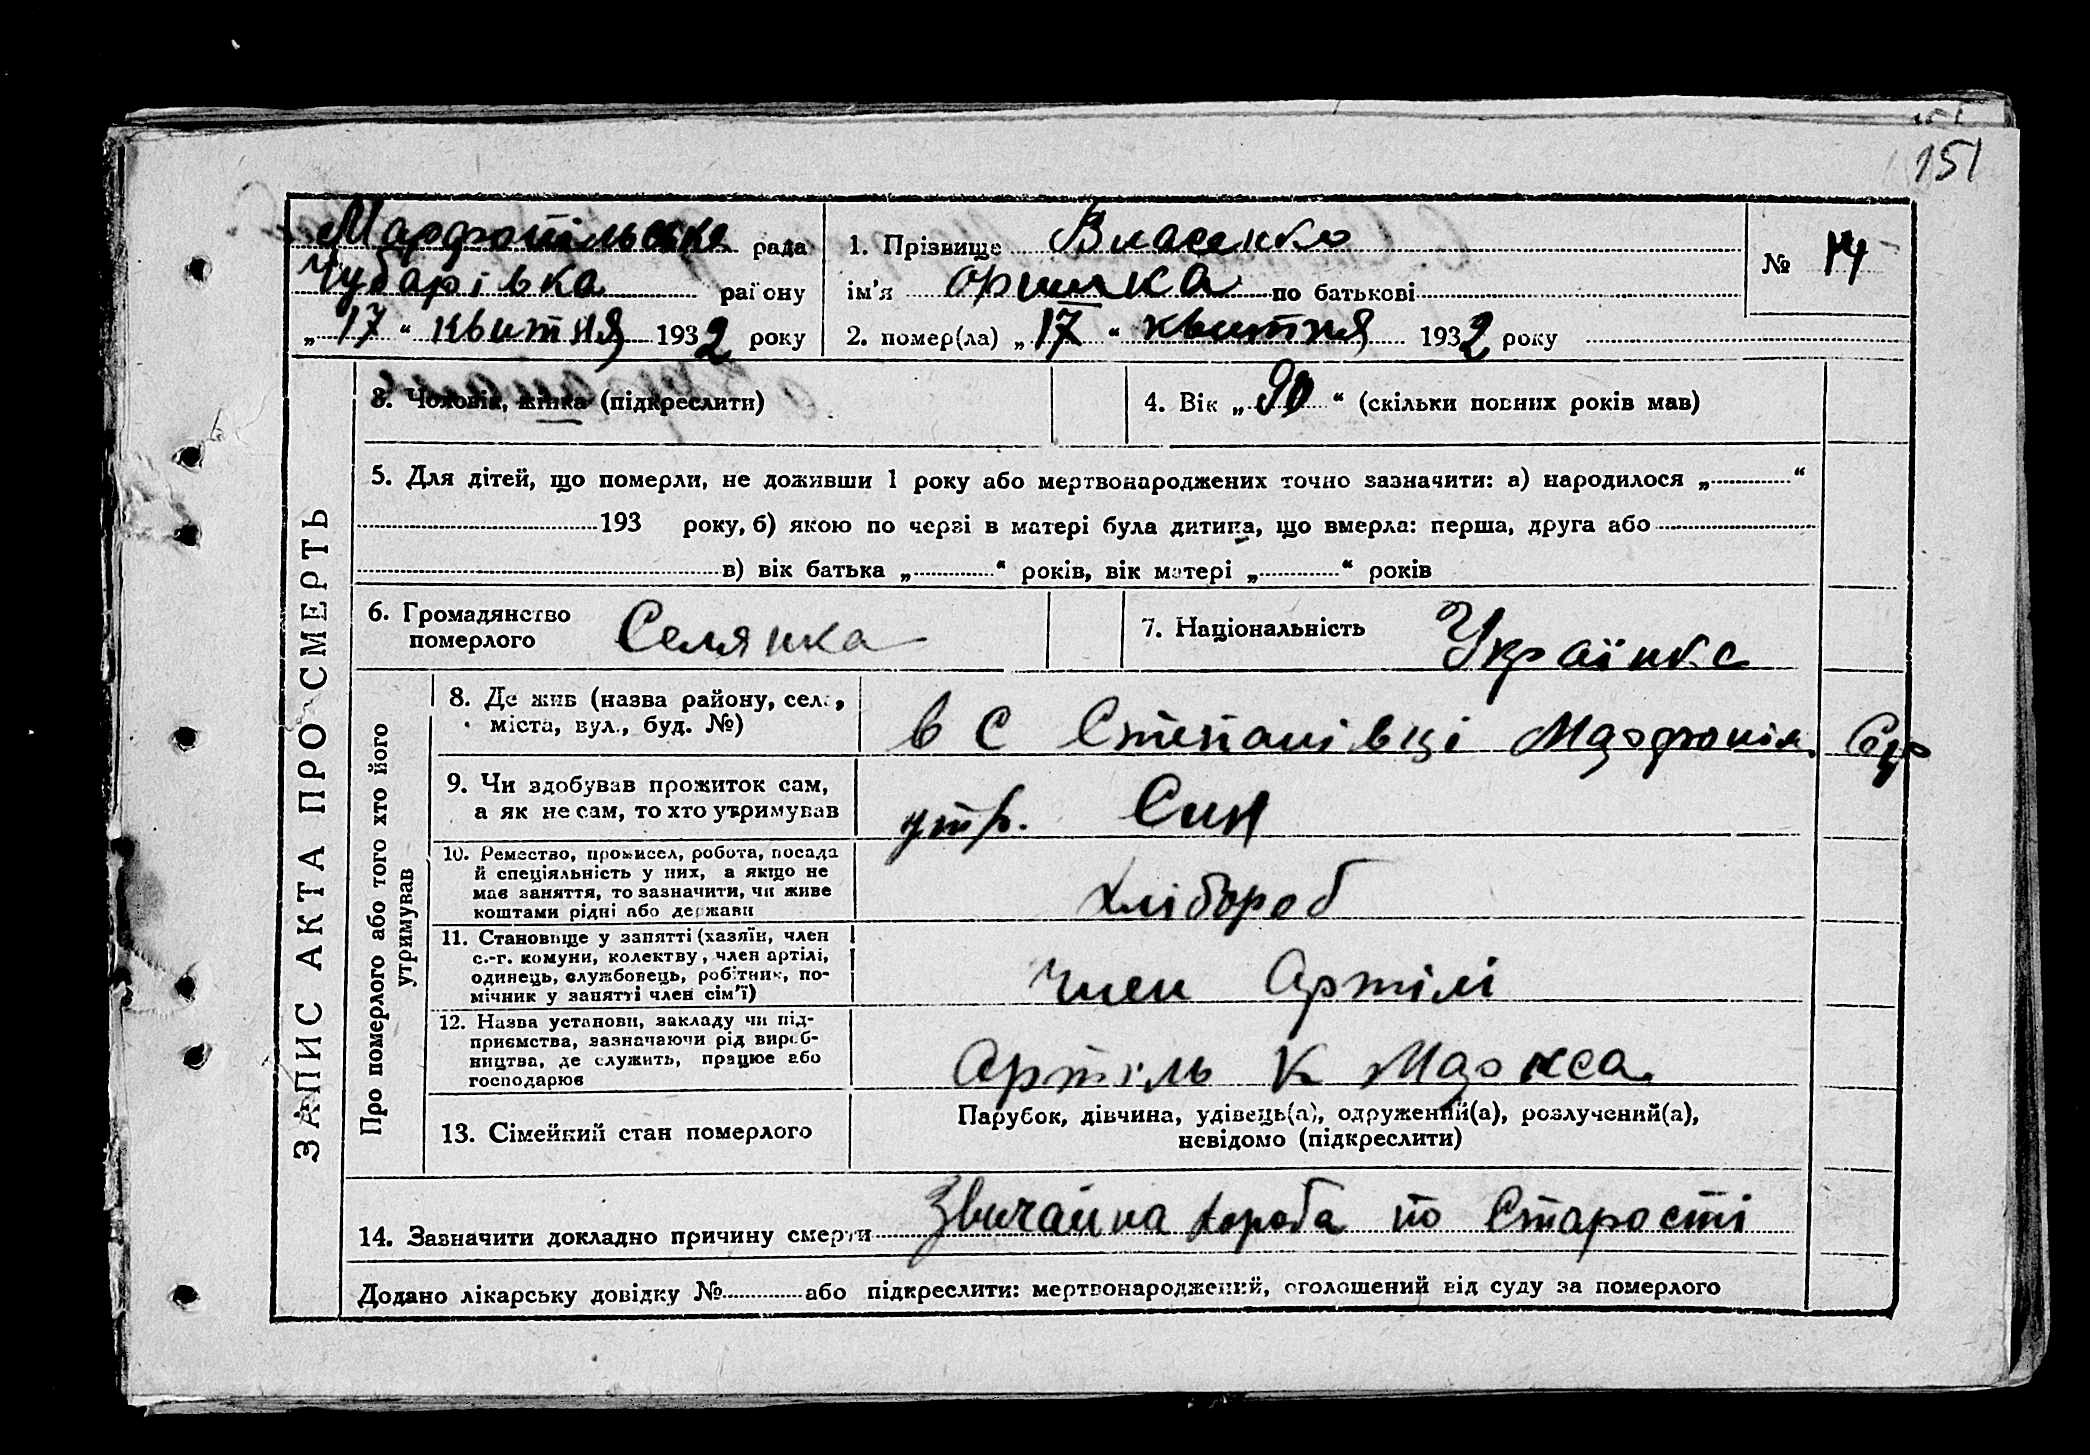 151
Марфопільська рада
Чубарівка району
„ 17 “ квитня 1932 року
1. Прізвище Власенко
ім’я Оришка по батькові
2. помер(ла) „ 17 “ квитня 1932 року
№ 14
ЗАПИС АКТА ПРО СМЕРТЬ
3. Чоловік, жінка (підкреслити)
4. Вік „ 90 “ (скільки повних років мав)
5. Для дітей, що померли, не доживши 1 року або мертвонароджених точно зазначити: а) народилося „ “
193 року, б) якою по черзі в матері була дитина, що вмерла: перша, друга або
в) вік батька „ “ років, вік матері „ “ років
6. Громадянство
померлого Селянка
7. Національність Українка
Про померлого або того хто його
утримував
8. Де жив (назва району, села,
міста, вул., буд. №)
в С Степанівці Марфопіл.
9. Чи здобував прожиток сам,
а як не сам, то хто утримував
утр. Син
10. Ремество, промисел, робота, посада
й спеціяльність у них, а якщо не
має заняття, то зазначити, чи живе
коштами рідні або держави
хлібороб
11. Становище у занятті (хазяїн, член
с.-г. комуни, колективу, член артілі,
одинець, службовець, робітник, по-
мічник у занятті член сім’ї)
Член Артілі
12. Назва установи, закладу чи під-
приємства, зазначаючи рід вироб-
ництва, де служить, працює або
господарює
Артіль К Маркса
13. Сімейний стан померлого
Парубок, дівчина, удівець(а), одружений(а), розлучений(а),
невідомо (підкреслити)
14. Зазначити докладно причину смерти Звичайна хороба по Старості
Додано лікарську довідку № або підкреслити: мертвонароджений, оголошений від суду за померлого